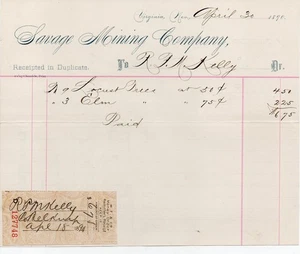 Virginia, Nev. April 30 189
Savage Mining Company,
Receipted in Duplicate. To R. P. M. Kelly Dr.
9 Locust Trees at 50¢ 450
" 3 Elm " " 75¢ 225
$675
Paid
R P M Kelly
Apl 18